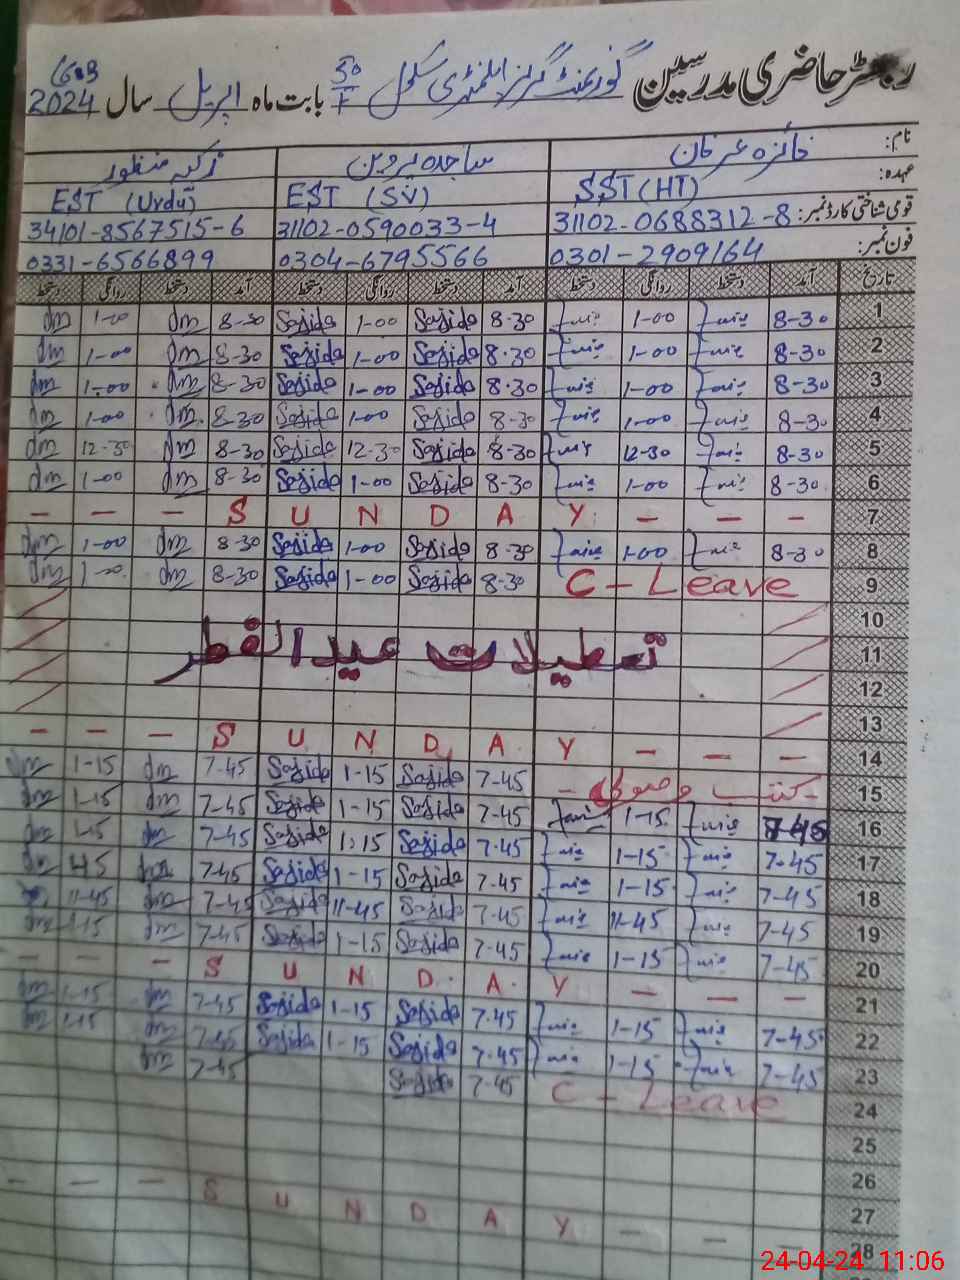 رجسٹر حاضری مدرسین گورنمنٹ گرلز ایلمنٹری سکول 50/F بابت ماہ اپریل سال 2024
نام: فائزہ عرفان ساجدہ پروین ذکیہ منظور
عہدہ: SST (HT) EST (SV) EST (Urdu)
قومی شناختی کارڈ نمبر: 31102-0688312-8 31102-0590033-4 34101-8567515-6
فون نمبر: 0301-2909164 0304-6795566 0331-6566899
تاریخ آمد دستخط روانگی دستخط آمد دستخط روانگی دستخط آمد دستخط روانگی دستخط
1 8-30 1-00 8-30 Sajida 1-00 Sajida 8-30 dm 1-00 dm
2 8-30 1-00 8-30 Sajida 1-00 Sajida 8-30 dm 1-00 dm
3 8-30 1-00 8-30 Sajida 1-00 Sajida 8-30 dm 1-00 dm
4 8-30 1-00 8-30 Sajida 1-00 Sajida 8-30 dm 1-00 dm
5 8-30 12-30 8-30 Sajida 12-30 Sajida 8-30 dm 12-30 dm
6 8-30 1-00 8-30 Sajida 1-00 Sajida 8-30 dm 1-00 dm
7 — — — S U N D A Y — — —
8 8-30 1-00 8-30 Sajida 1-00 Sajida 8-30 dm 1-00 dm
9 C - Leave 8-30 Sajida 1-00 Sajida 8-30 dm 1-00 dm
10
11 تعطیلات عید الفطر
12
13
14 — — — S U N D A Y — — —
15 کتب وصولی 7-45 Sajida 1-15 Sajida 7-45 dm 1-15 dm
16 7-45 1-15 7-45 Sajida 1-15 Sajida 7-45 dm 1-15 dm
17 7-45 1-15 7-45 Sajida 1-15 Sajida 7-45 dm 1-15 dm
18 7-45 1-15 7-45 Sajida 1-15 Sajida 7-45 dm
19 7-45 11-45 7-45 Sajida 11-45 Sajida 7-45 dm 11-45
20 7-45 1-15 7-45 Sajida 1-15 Sajida 7-45 dm 1-15 dm
21 — — — S U N D A Y — — —
22 7-45 1-15 7-45 Sajida 1-15 Sajida 7-45 dm 1-15 dm
23 7-45 1-15 7-45 Sajida 1-15 Sajida 7-45 dm 1-15 dm
24 C - Leave 7-45 Sajida 7-45 dm
25
26
27
28 — — — S U N D A Y — — —
24-04-24 11:06